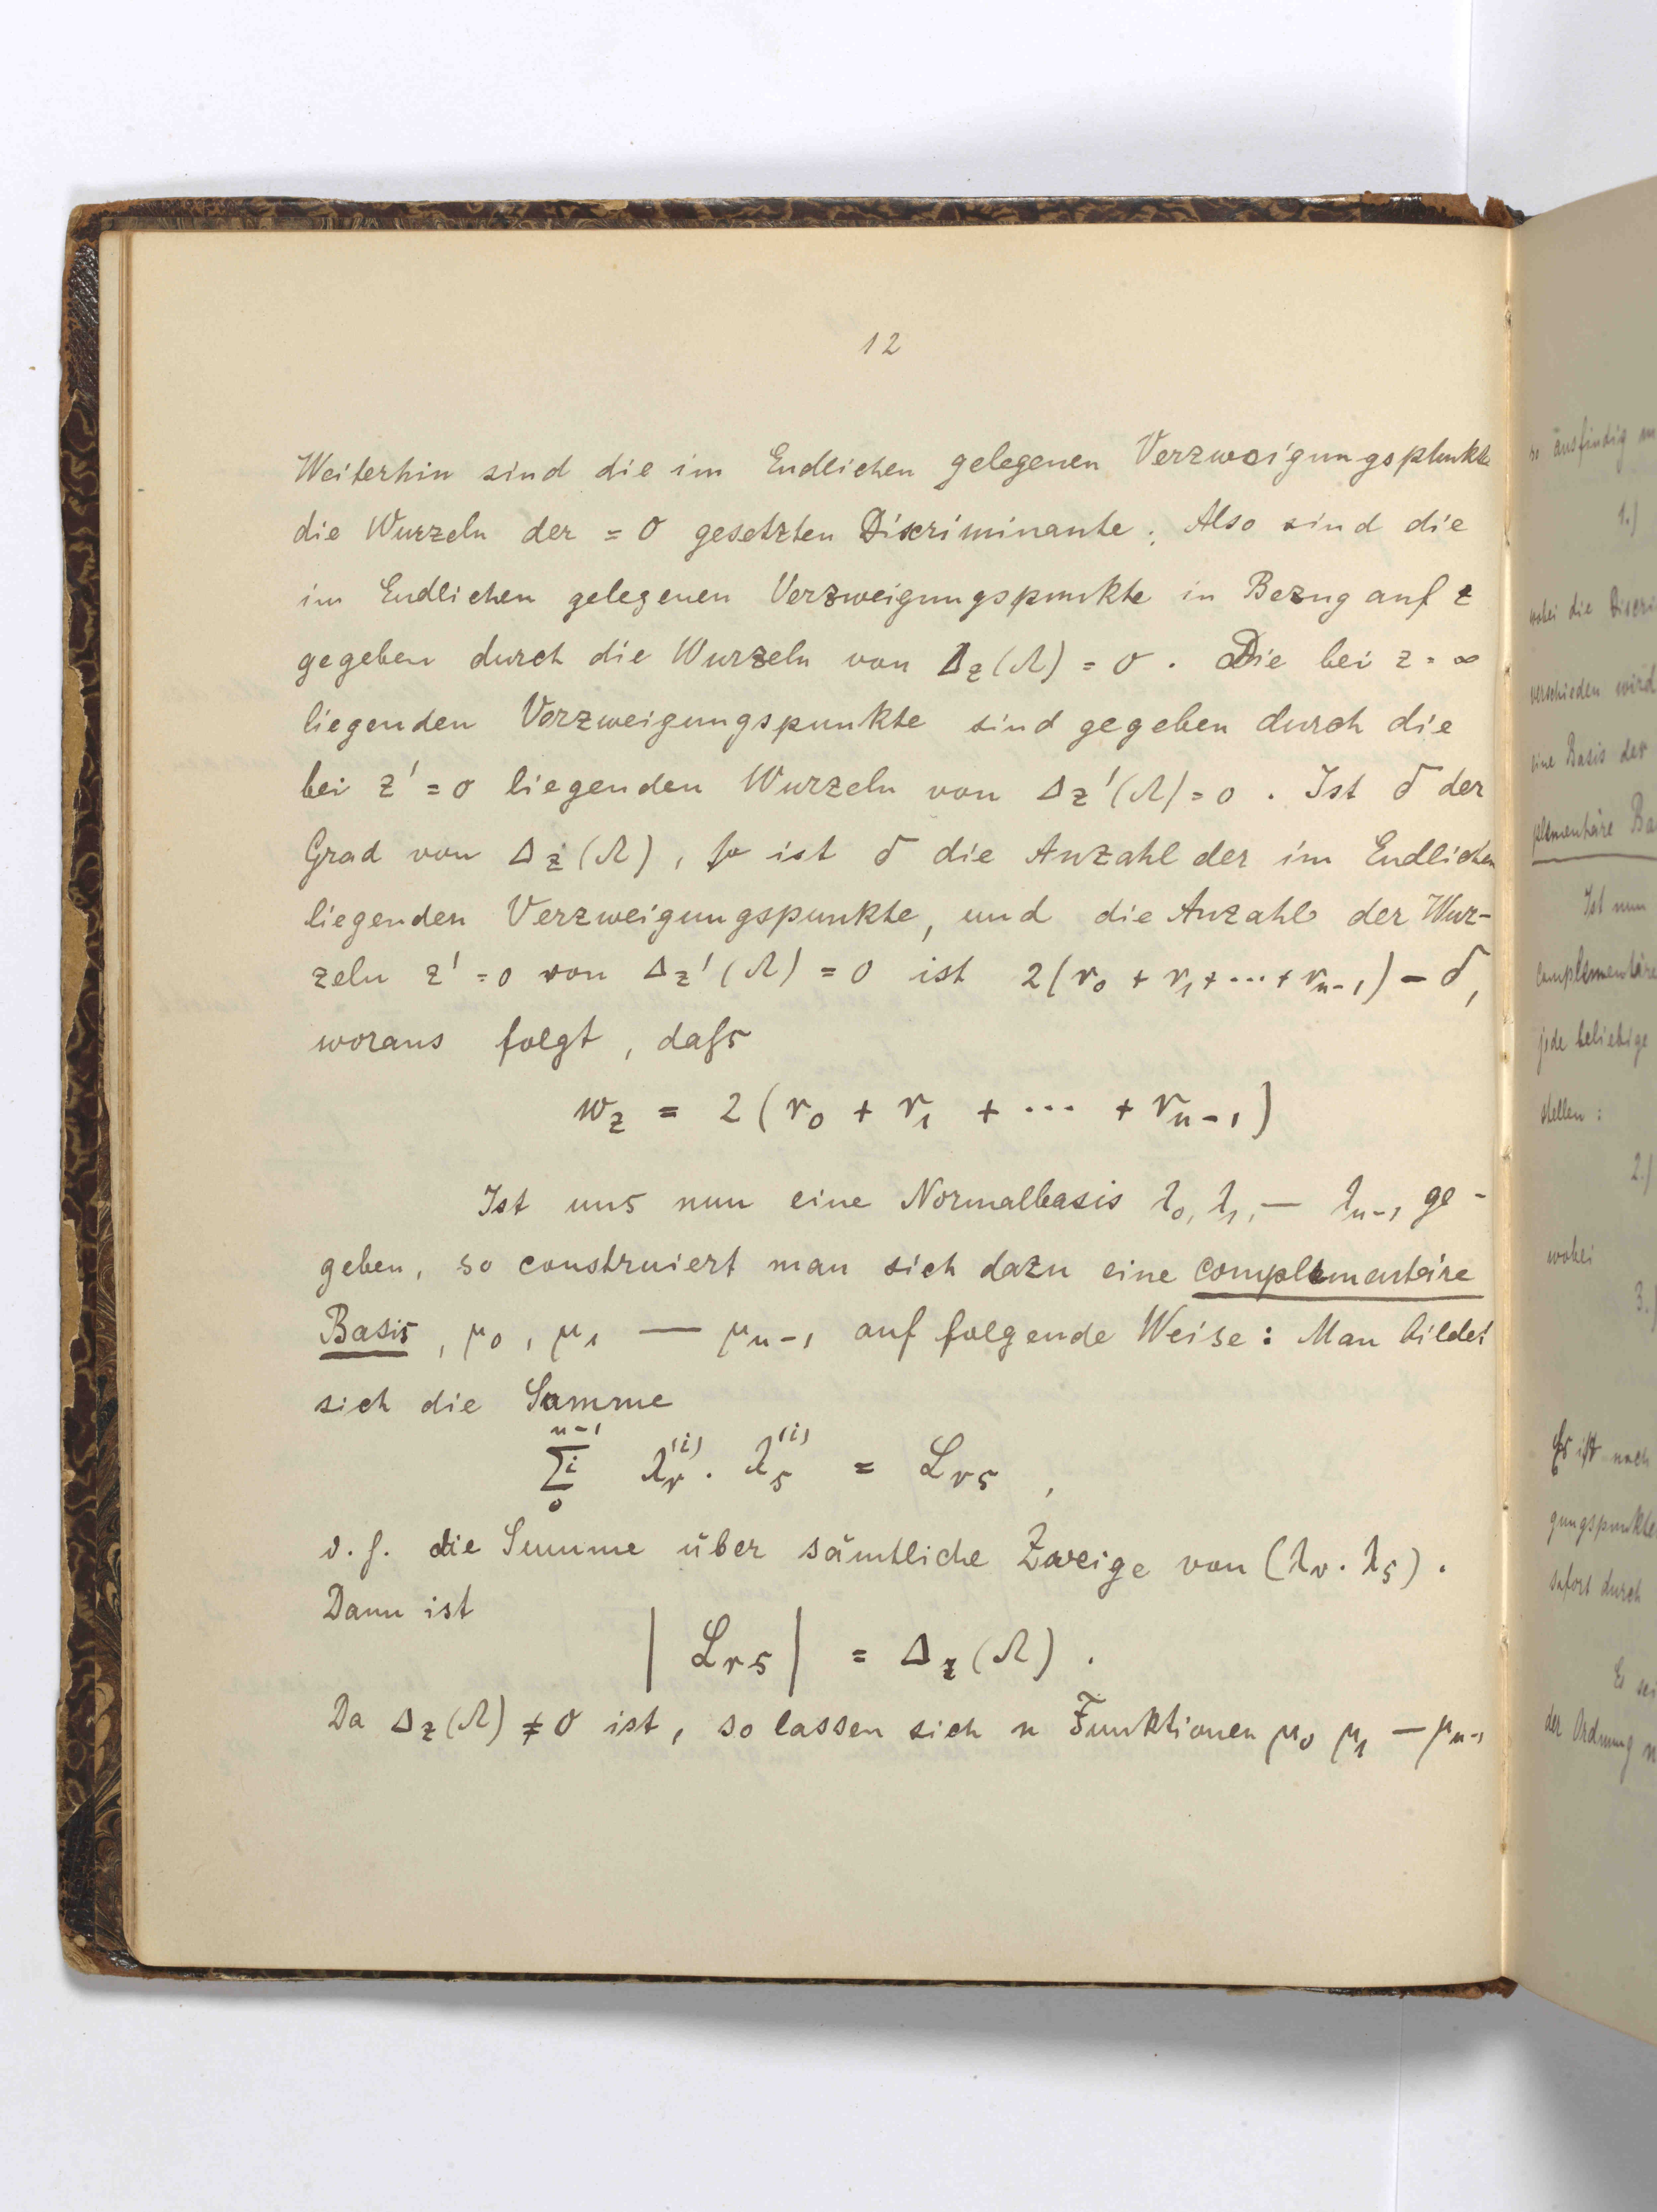 12
Weiterhin sind die im Endlichen gelegenen Verzweigungspunkte
die Wurzeln der = 0 gesetzten Discriminante. Also sind die
im Endlichen gelegenen Verzweigungspunkte in Bezug auf z
gegeben durch die Wurzeln von Δz(Λ) = 0. Die bei z = ∞
liegenden Verzweigungspunkte sind gegeben durch die
bei z' = 0 liegenden Wurzeln von Δz'(Λ) = 0. Ist δ der
Grad von Δz(Λ), so ist δ die Anzahl der im Endlichen
liegenden Verzweigungspunkte, und die Anzahl der Wur-
zeln z' = 0 von Δz'(Λ) = 0 ist 2(r₀ + r₁ + ... + rₙ₋₁) - δ,
woraus folgt, dafs
wz = 2(r₀ + r₁ + ... + rₙ₋₁)
Ist uns nun eine Normalbasis λ₀, λ₁, — λₙ₋₁ ge-
geben, so construiert man sich dazu eine complementäre
Basis, μ₀, μ₁ — μₙ₋₁ auf folgende Weise: Man bildet
sich die Summe
n-1
Σi λr(i) . λs(i) = ℒrs,
0
d. h. die Summe über sämtliche Zweige von (λr . λs).
Dann ist
| ℒrs | = Δz(Λ).
Da Δz(Λ) ≠ 0 ist, so lassen sich n Funktionen μ₀ μ₁ — μₙ₋₁
ausfindig
1.)
wobei die Discri
verschieden wird
eine Basis der
plementäre Ba
Ist nun
complementäre
jede beliebige
stellen:
2.)
wobei
3.)
Es ist nach
gungspunkte
sofort durch
Es sei
der Ordnung